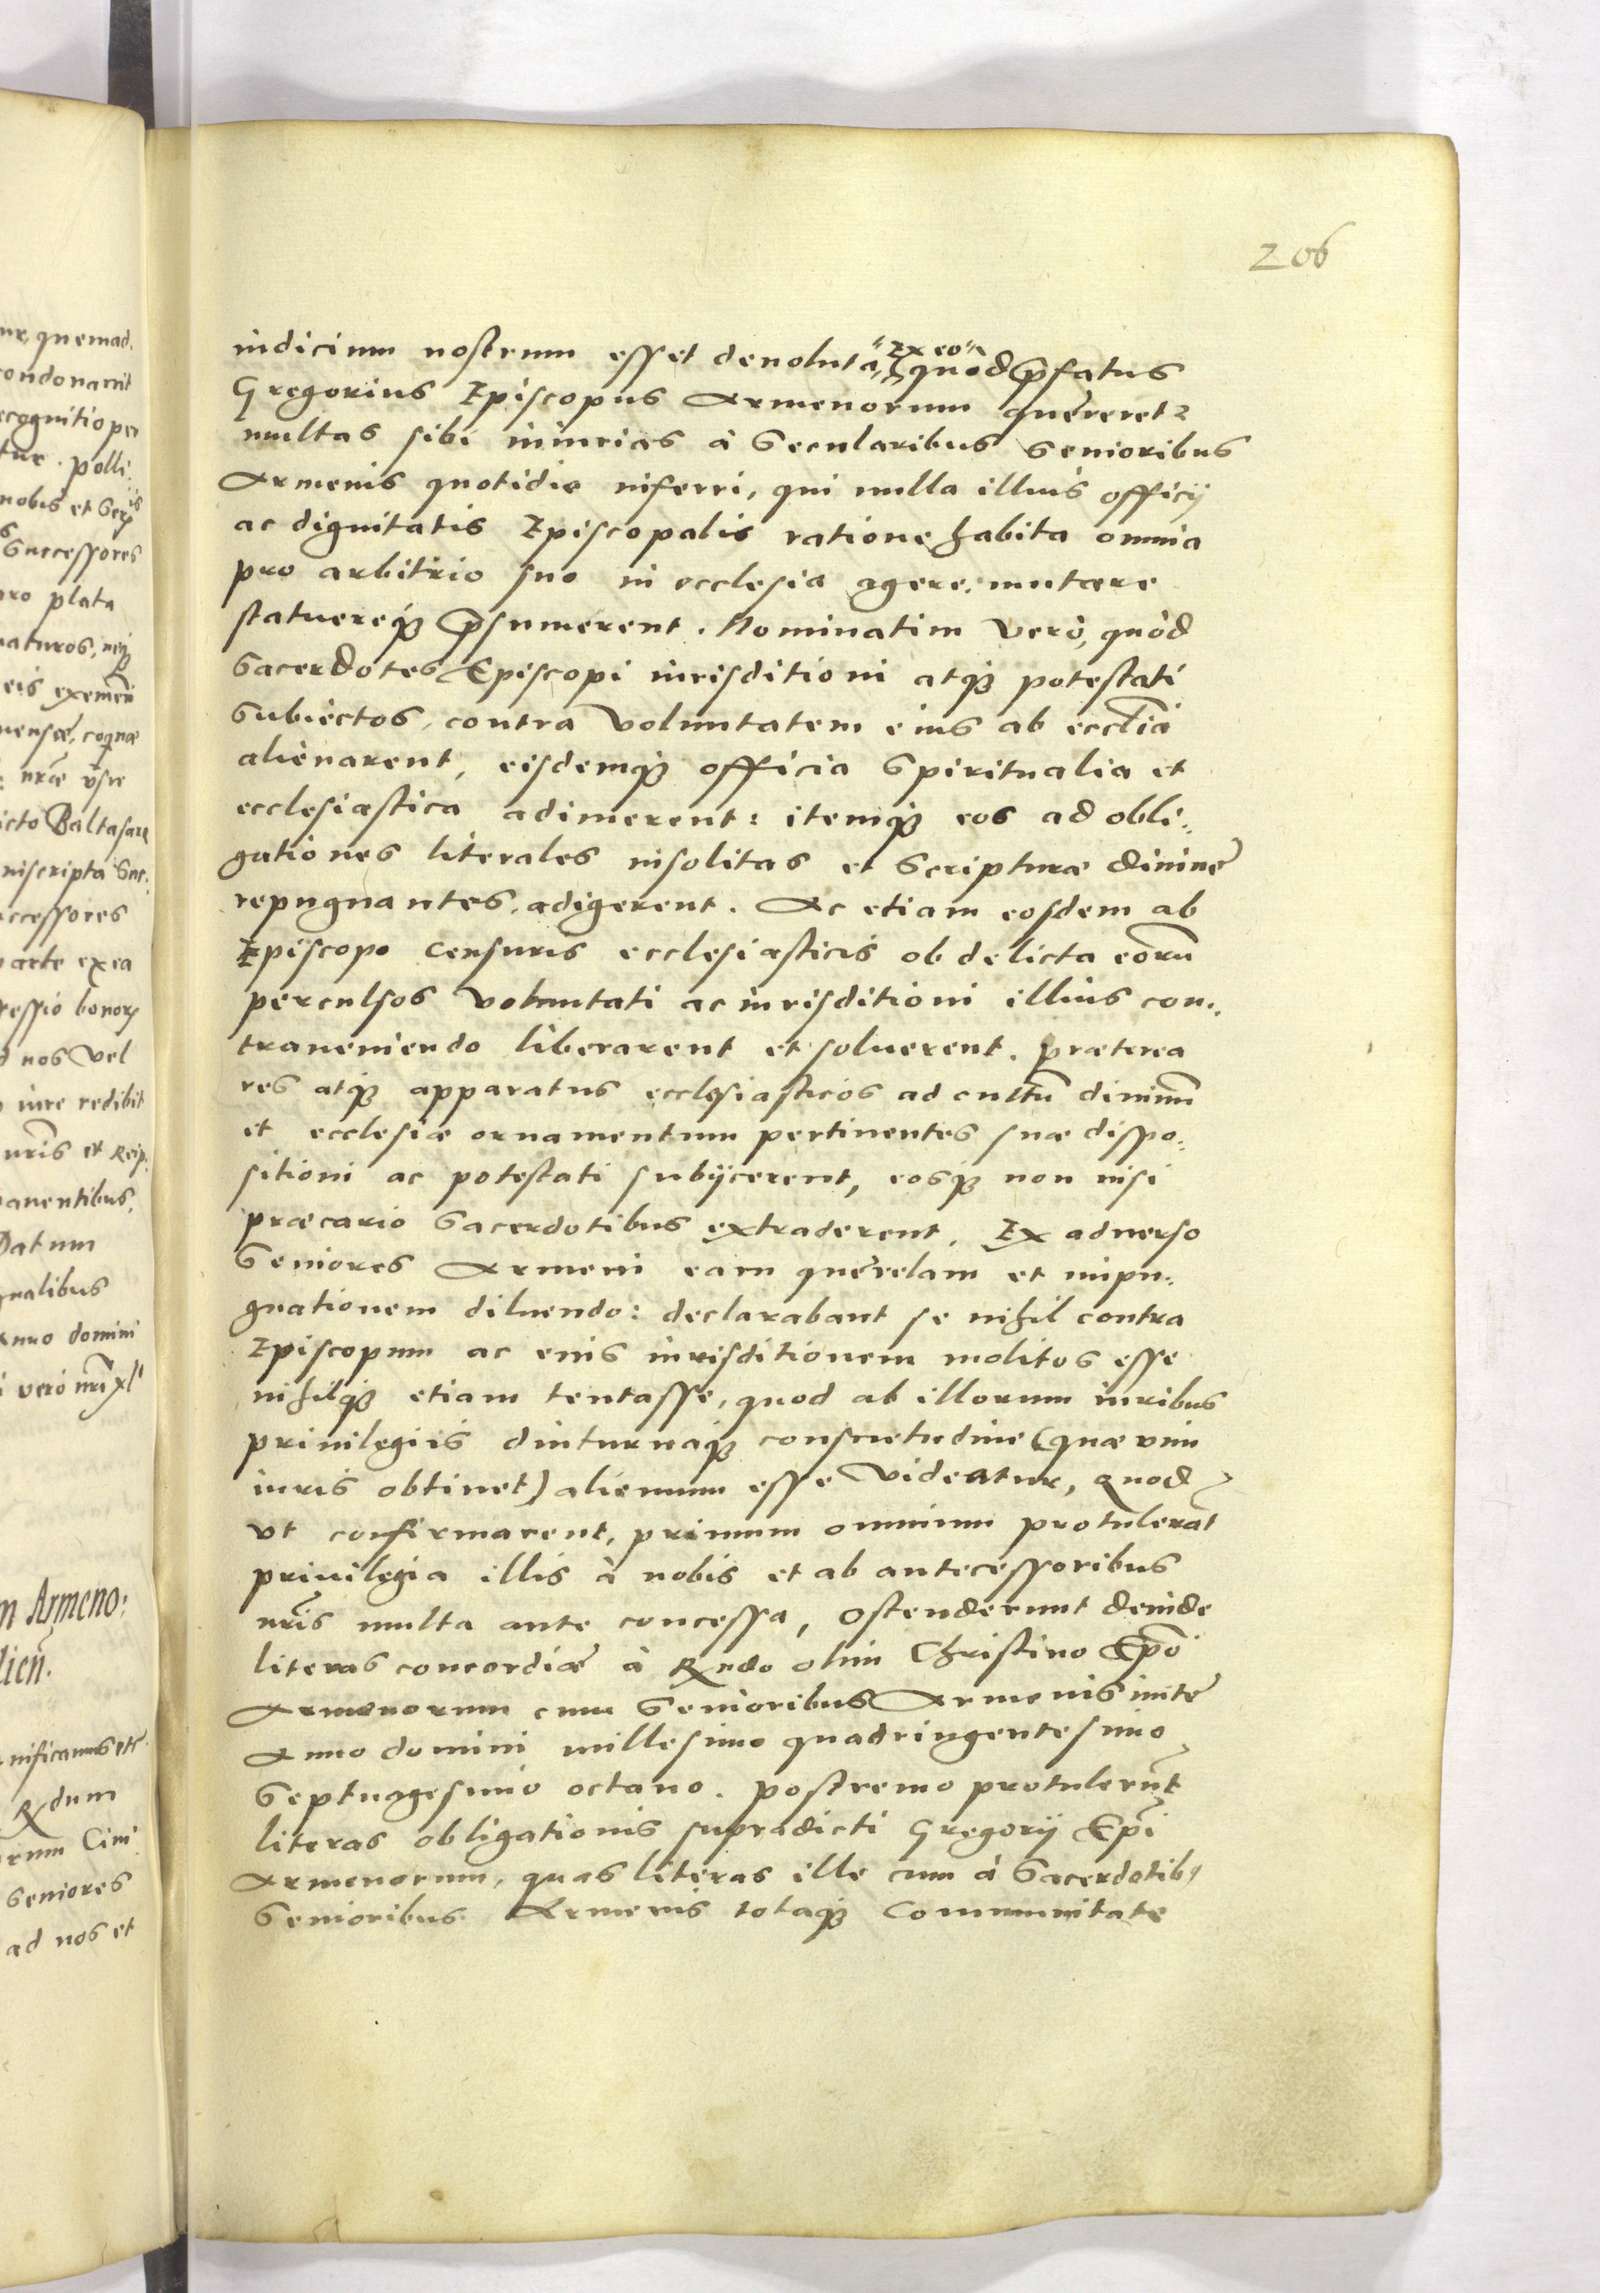 206
iudicium nostrum esset deuoluta, Ex eo quod p̃fatus
Gregorius Episcopus Armenorum quęreret²
multas sibi iniurias à Secularibus Senioribus
Armenis quotidie inferri, qui nulla illius officij
ac dignitatis Episcopalis ratione habita omnia
pro arbitrio suo in ecclesia agere, mutare
statuereq₃ p̃sumerent. Nominatim verò, quòd
Sacerdotes Episcopi iurisditioni atq₃ potestati
Subiectos, contra voluntatem eius ab eccl̃ia
alienarent, eisdemq₃ officia Spiritualia et
ecclesiastica adimerent: itemq₃ eos ad obli-
gationes literales insolitas et Scripturæ diuinę
repugnantes, adigerent. Ac etiam eosdem ab
Episcopo censuris ecclesiasticis ob delicta eorũ
perculsos voluntati ac iurisditioni illius con-
traueniendo liberarent et soluerent. præterea
res atq₃ apparatus ecclesiasticos ad cultũ diuinũ
et ecclesiæ ornamentum pertinentes suæ dispo-
sitioni ac potestati subijcerent, eosq₃ non nisi
præcario Sacerdotibus extraderent. Ex aduerso
Seniores Armeni eam quęrelam et impu-
gnationem diluendo: declarabant se nihil contra
Episcopum ac eius iurisditionem molitos esse
nihilq₃ etiam tentasse, quod ab illorum iuribus
priuilegiis diuturnaq₃ consuetudine (quæ vim
iuris obtinet) alienum esse videatur, quod
vt confirmarent, primum omnium protulerãt
priuilegia illis à nobis et ab antecessoribus
nr̃is multa ante concessa, ostenderunt deinde
literas concordiæ à Rndo olim Christino Ep̃o
Armenorum cum Senioribus Armenis initę
Anno domini millesimo quadringentesimo
Septuagesimo octauo. postremo protulerũt
literas obligationis supradicti Gregorij Ep̃i
Armenorum, quas literas ille cum à Sacerdotib₉
Senioribus Armenis totaq₃ Communitate